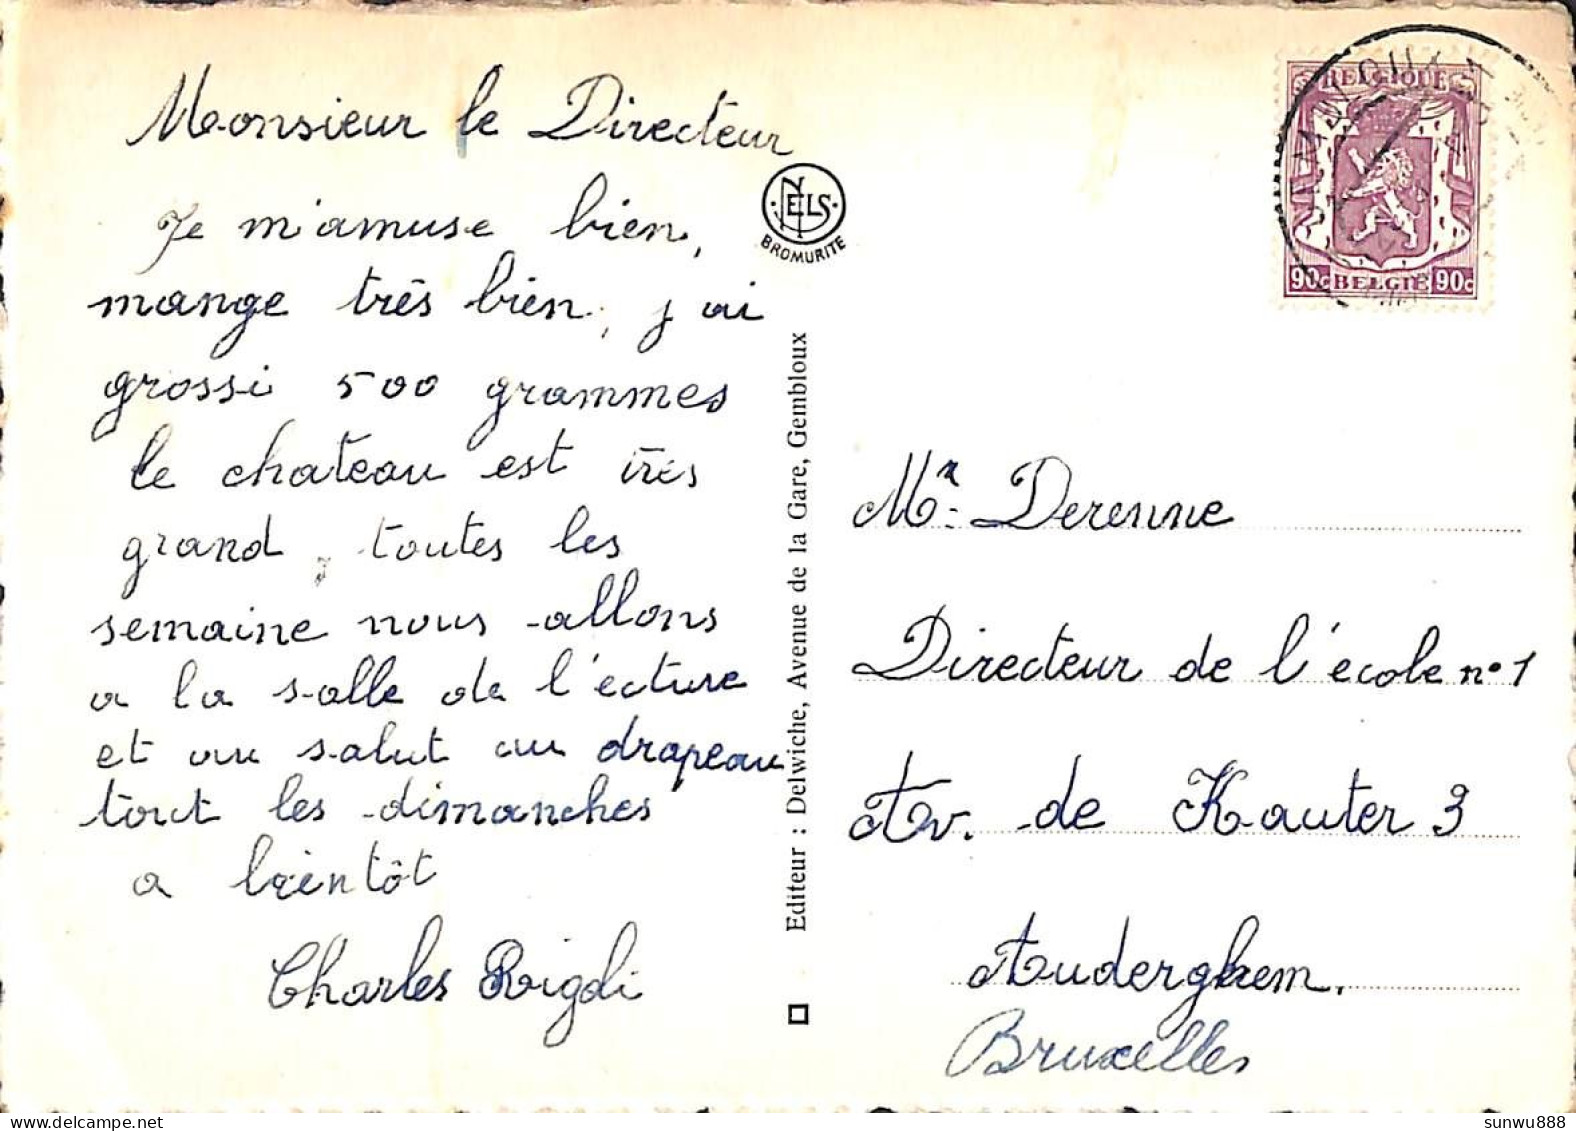 Monsieur le Directeur
Je m'amuse bien,
mange très bien, j'ai
grossi 500 grammes
le chateau est très
grand, toutes les
semaine nous allons
a la salle de l'écture
et au salut au drapeau
tout les dimanches
a bientôt
Charles Rigdi
NELS
BROMURITE
Editeur : Delwiche, Avenue de la Gare, Gembloux
BELGIQUE
90c BELGIË 90c
Mr. Derenne
Directeur de l'école n° 1
Av. de Kauter 3
Auderghem.
Bruxelles
sunwu888